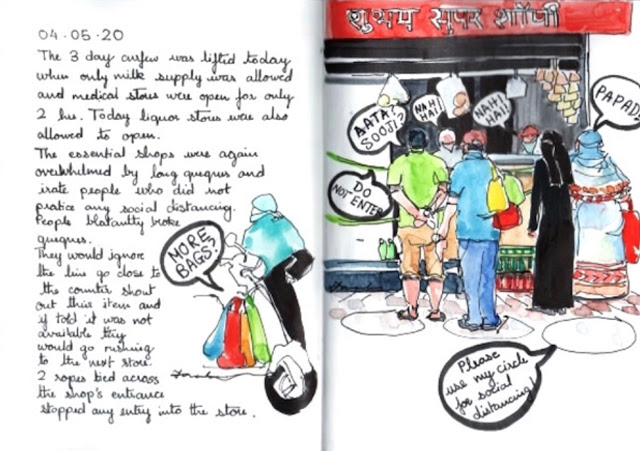 04-05-20
The 3 day curfew was lifted today
when only milk supply was allowed
and medical stores were open for only
2 hrs. Today liquor stores were also
allowed to open.
The essential shops were again
overwhelmed by long queques and
irate people who did not
pratice any social distancing.
People blatauntly broke
queques.
They would ignore
the line go close to
the counter shout
out their item and
if told it was not
available they
would go rushing
to the next store.
2 ropes tied across
the shop's entrance
stopped any entry into the store.
MORE
BAGS?
शुभम सुपर शॉपी
AATA?
SOOJI?
NAHI
HAI!
NAHI
HAI!
PAPAD?
DO
NOT ENTER
Please
use my circle
for social
distancing!